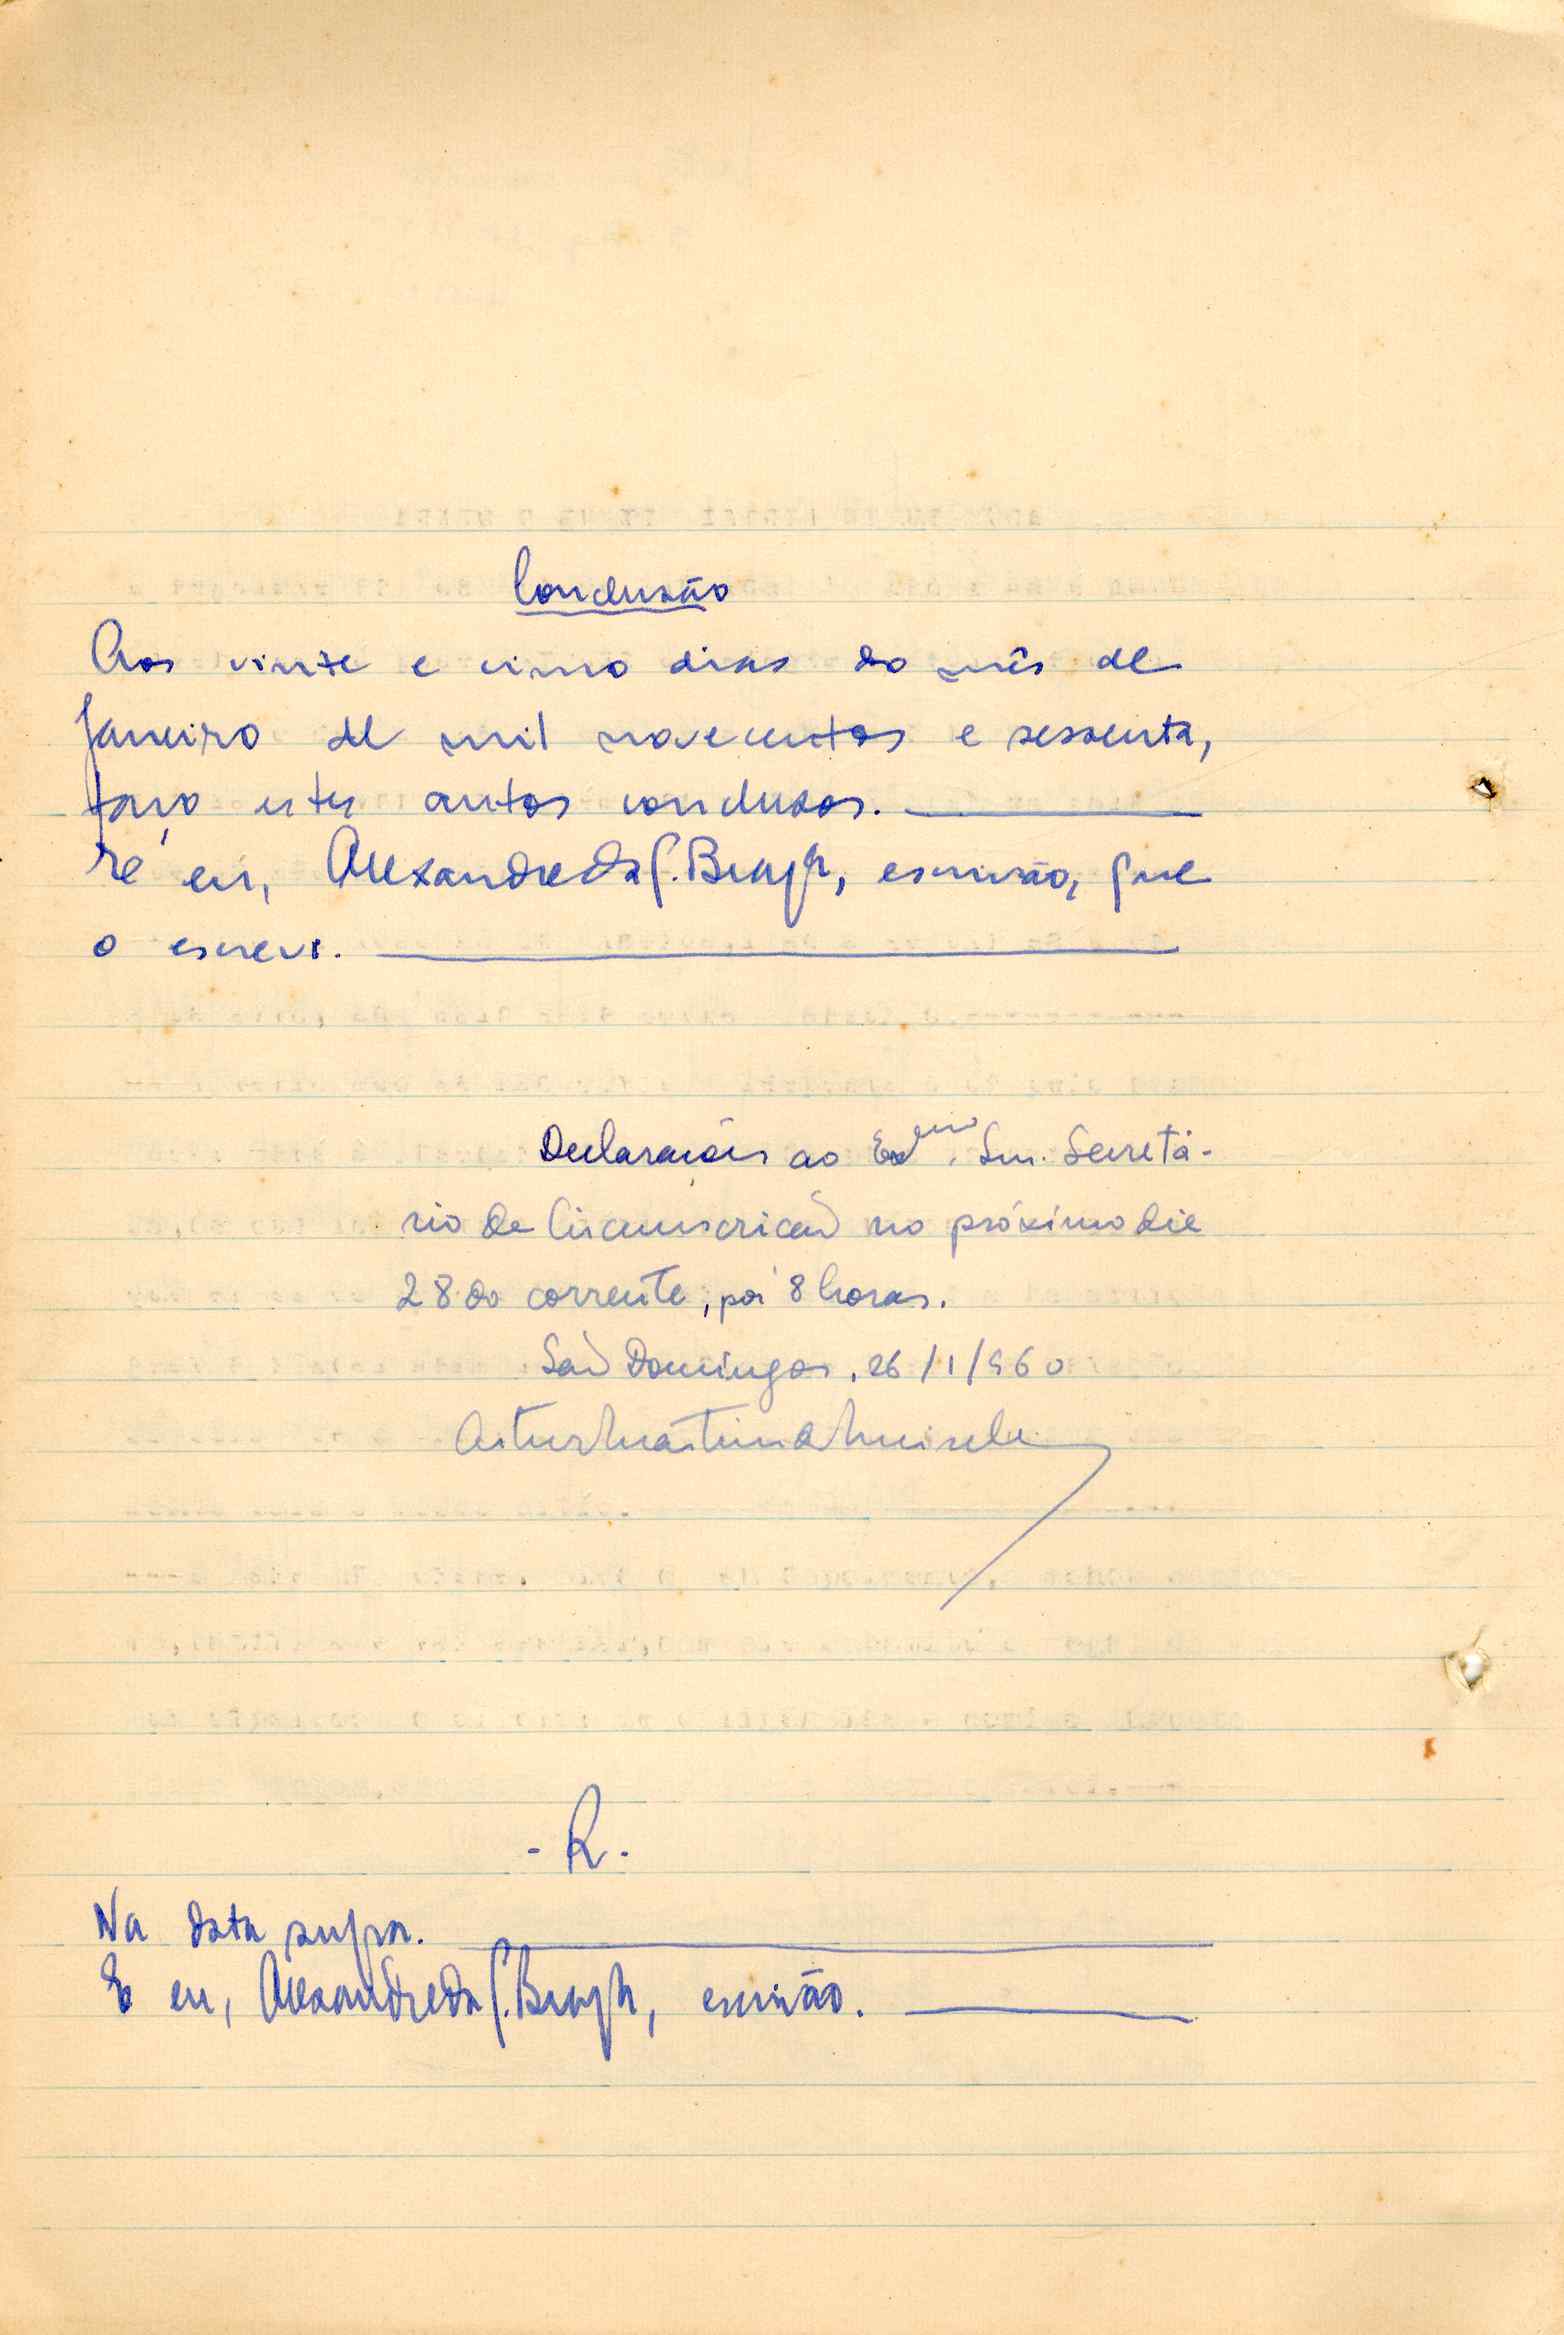 Conclusão
Aos vinte e cinco dias do mês de
Janeiro de mil novecentos e sessenta,
faço estes autos conclusos.
E eu, Alexandre da C. Braga, escrivão, que
o escrevi.
Declarações ao Exmo. Snr. Secretá-
rio da Circunscrição no próximo dia
28 do corrente, pás 8 horas.
São Domingos, 26/1/960
Artur Martins de
- R. -
Na data supra.
E eu, Alexandre da C. Braga, escrivão.